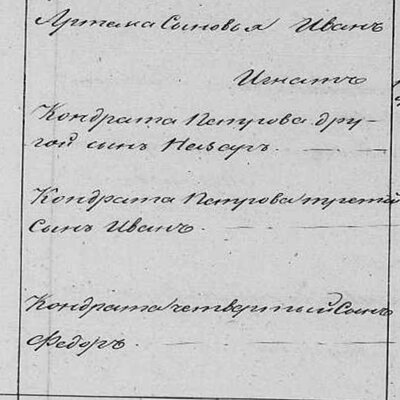 Артема Сыновья Иванъ
Игнатъ
Кондрата Петрова дру-
гой сынъ Назаръ.
Кондрата Петрова третий
Сынъ Иванъ.
Кондрата четвертый Сынъ
Федоръ.